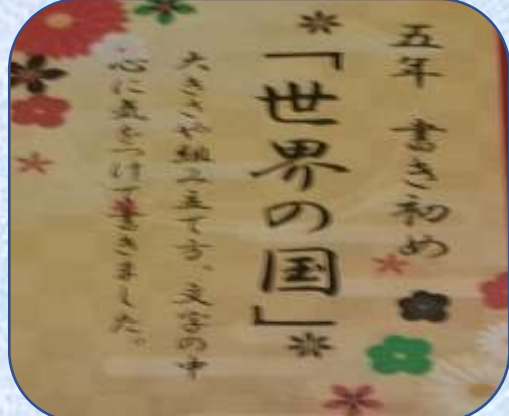 五年 書き初め
*「世界の国」*
大きさや組み立て方、文字の中
心に気をつけて書きました。